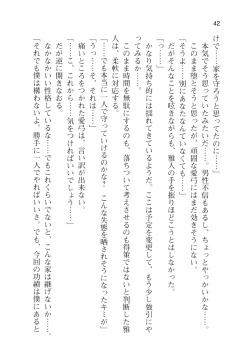 42
けで……家を守ろうと思ってたのに……」
本気でそう思っていたみたいだ……。男性不信もあるし、ちょっとやっかいかな……。
このまま堕とそうと思ったが、頑固な愛弓にはまだ効きそうにない。
「そう……別にあなたでなくていい……でも……」
そんなことを呟きながらも、雅人の手を振りほどこうとはしなかった。
「っ……」
かなり気持ち的には揺れてきているようだ。ここは予定を変更して、もう少し強引にやってみるか……。
このまま時間を無駄にするのも、落ちついて考えさせるのも得策ではないと判断した雅人は、柔軟に対応する。
「……でも本当に一人で守っていけるのかな？　こんな失態を晒されそうになったキミが」
「うっ……そ、それは……」
痛いところを突かれた愛弓は、言い訳が出来ない。
「こ、これから……気をつければいいでしょう……」
だが逆に開きなおる。
なかなかいい性格しているな……でもそうでないと、こんな家は継げないか……。
「それでも僕は構わないよ。勝手に一人でやればいいさ、でも、今回の功績は僕にあると